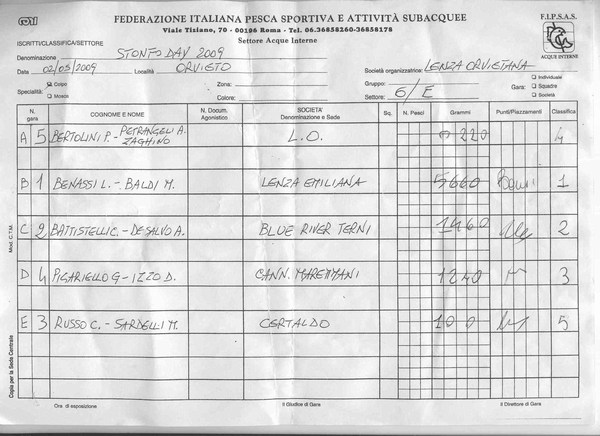 FEDERAZIONE ITALIANA PESCA SPORTIVA E ATTIVITÀ SUBACQUEE
Viale Tiziano, 70 - 00196 Roma - Tel. 06.36858260-36858178
Settore Acque Interne
F.I.P.S.A.S.
ACQUE INTERNE
ISCRITTI/CLASSIFICA/SETTORE
Denominazione STONFO DAY 2009
Data 02/05/2009 Località ORVIETO
Società organizzatrice: LENZA ORVIETANA
Specialità: Colpo Mosca
Zona:
Colore:
Gruppo:
Settore: 6/E
Gara: Individuale Squadre Società
N. gara COGNOME E NOME N. Docum. Agonistico SOCIETÀ Denominazione e Sede Sq. N. Pesci Grammi Punti/Piazzamenti Classifica
A 5 BERTOLINI P. - PETRANGELI A. ZAGHINO L.O. 0 220 4
B 1 BENASSI L. - BALDI M. LENZA EMILIANA 5660 1
C 2 BATTISTELLI C. - DE SALVO A. BLUE RIVER TERNI 1460 2
D 4 PIGARIELLO G - IZZO D. CANN. MAREMMANI 1240 3
E 3 RUSSO C. - SARDELLI M. CERTALDO 100 5
Mod. C.T.M.
Copia per la Sede Centrale
Ora di esposizione
Il Giudice di Gara
Il Direttore di Gara